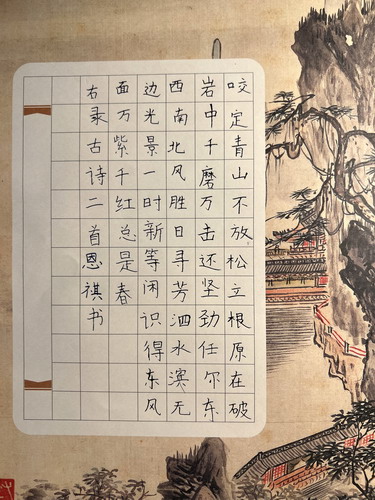 咬定青山不放松立根原在破
岩中千磨万击还坚劲任尔东
西南北风胜日寻芳泗水滨无
边光景一时新等闲识得东风
面万紫千红总是春
右录古诗二首恩祺书